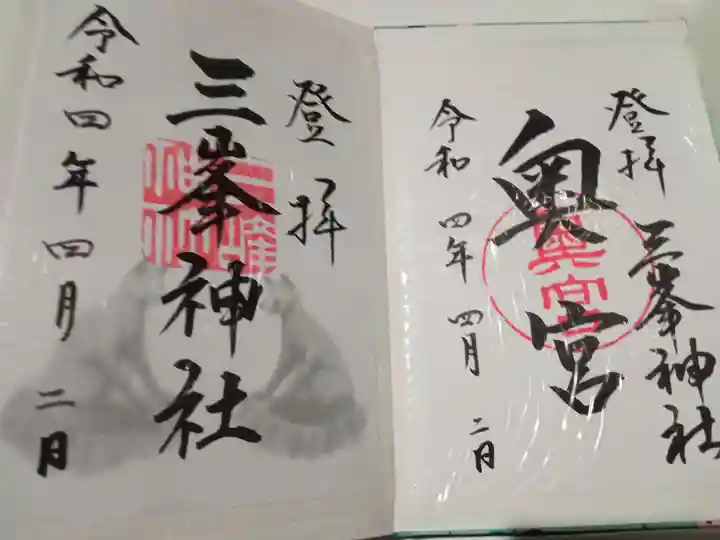 奥宮
登拝
三峯神社
奥宮
令和四年四月二日
登拝
三峯神社
令和四年四月二日